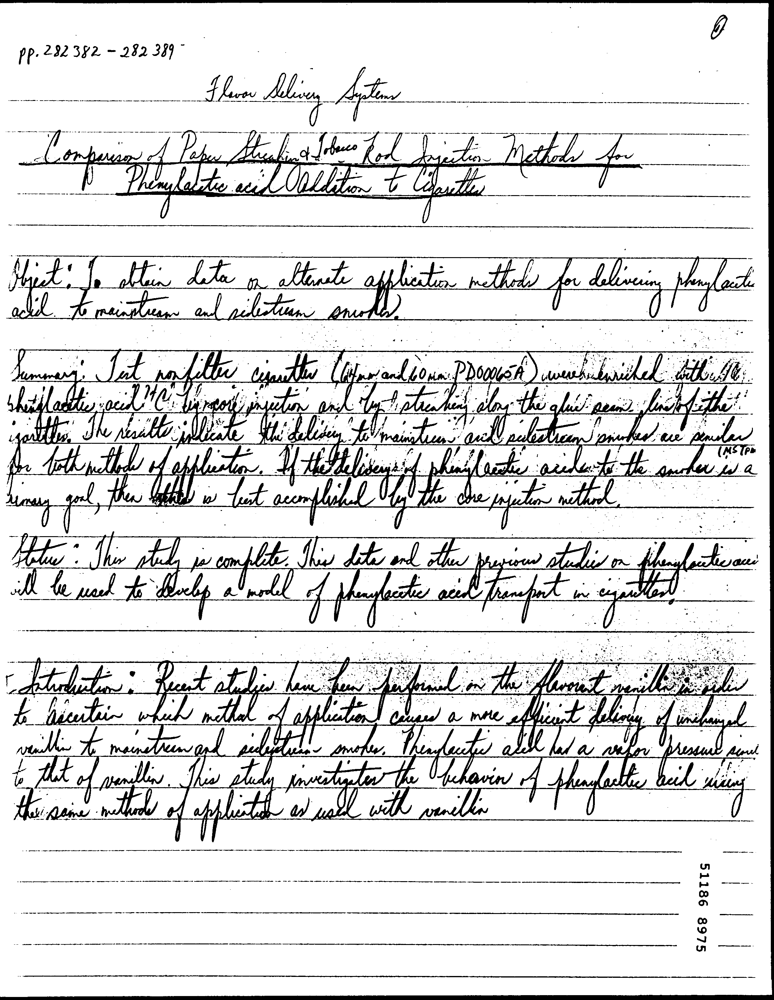 pp. 282382 - 282389
Flavor Delivery Systems
Comparison of Paper Streaking & Tobacco Rod Injection Methods for
Phenylacetic acid Addition to Cigarettes
Object: To obtain data on alternate application methods for delivering phenylacetic
acid to mainstream and sidestream smokes.
Summary: Test nonfilter cigarettes (64mm and 60mm PD00065A) were enriched with
phenylacetic acid 14C by core injection and by streaking along the glue seam line of the
cigarettes. The results indicate the delivery to mainstream and sidestream smokes are similar
for both methods of application. If the delivery of phenylacetic acid to the smoker is a
primary goal, then is best accomplished by the core injection method.
Status: This study is complete. This data and other previous studies on phenylacetic acid
will be used to develop a model of phenylacetic acid transport in cigarettes.
Introduction: Recent studies have been performed on the flavorant vanillin in order
to ascertain which method of application causes a more efficient delivery of unchanged
vanillin to mainstream and sidestream smokes. Phenylacetic acid has a vapor pressure
to that of vanillin. This study investigates the behavior of phenylacetic acid using
the same methods of application as used with vanillin
51186 8975